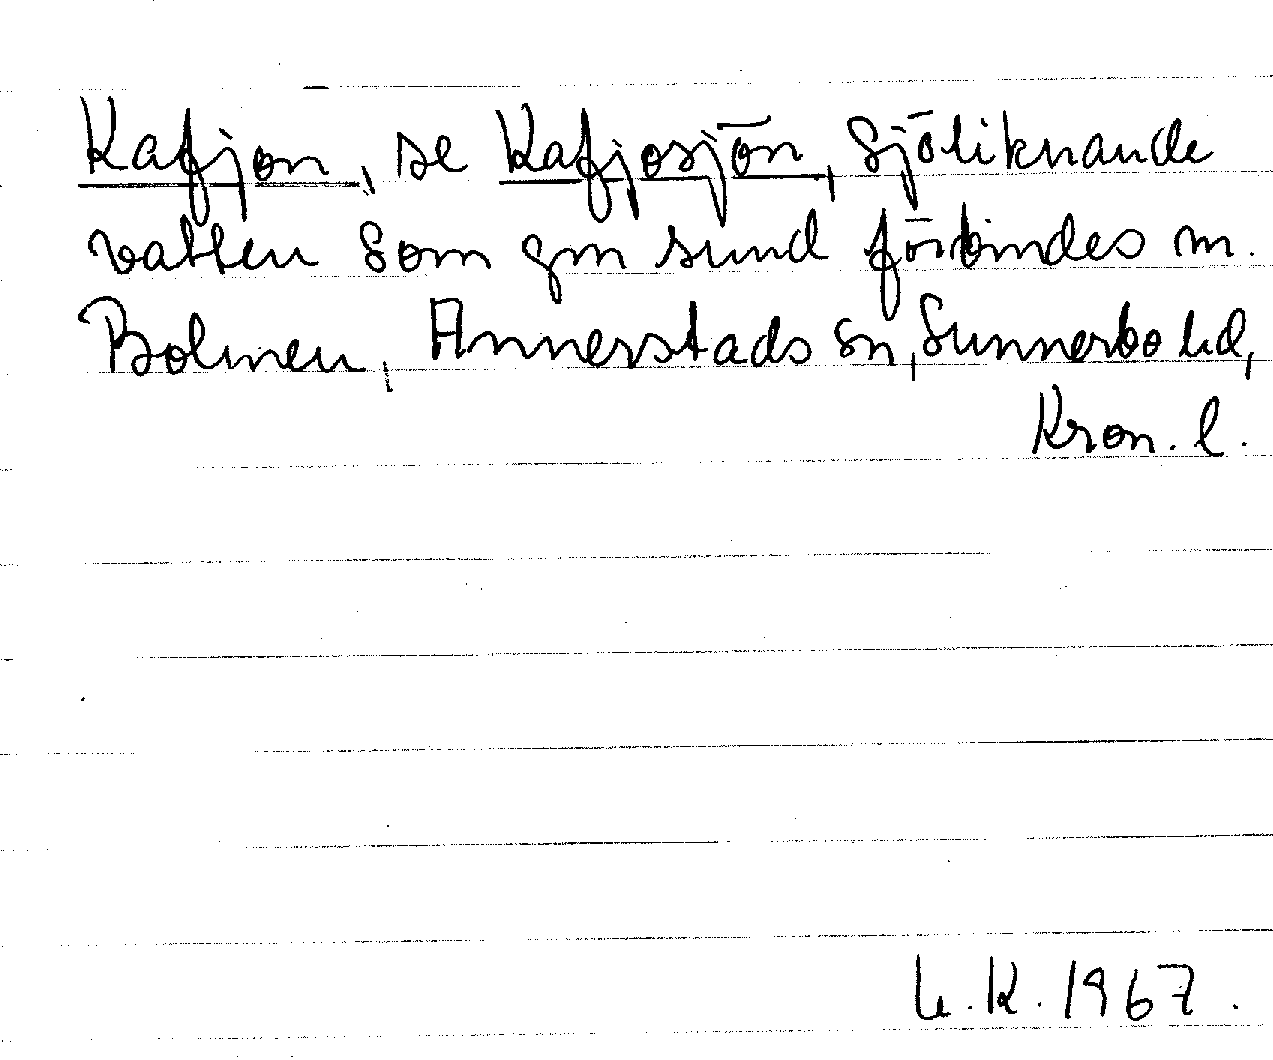 Kafjon, se Kafjosjön, sjöliknande
vatten som gm sund förbindes m.
Bolmen, Annerstads sn, Sunnerbo hd,
Kron. l.
h.K. 1967.